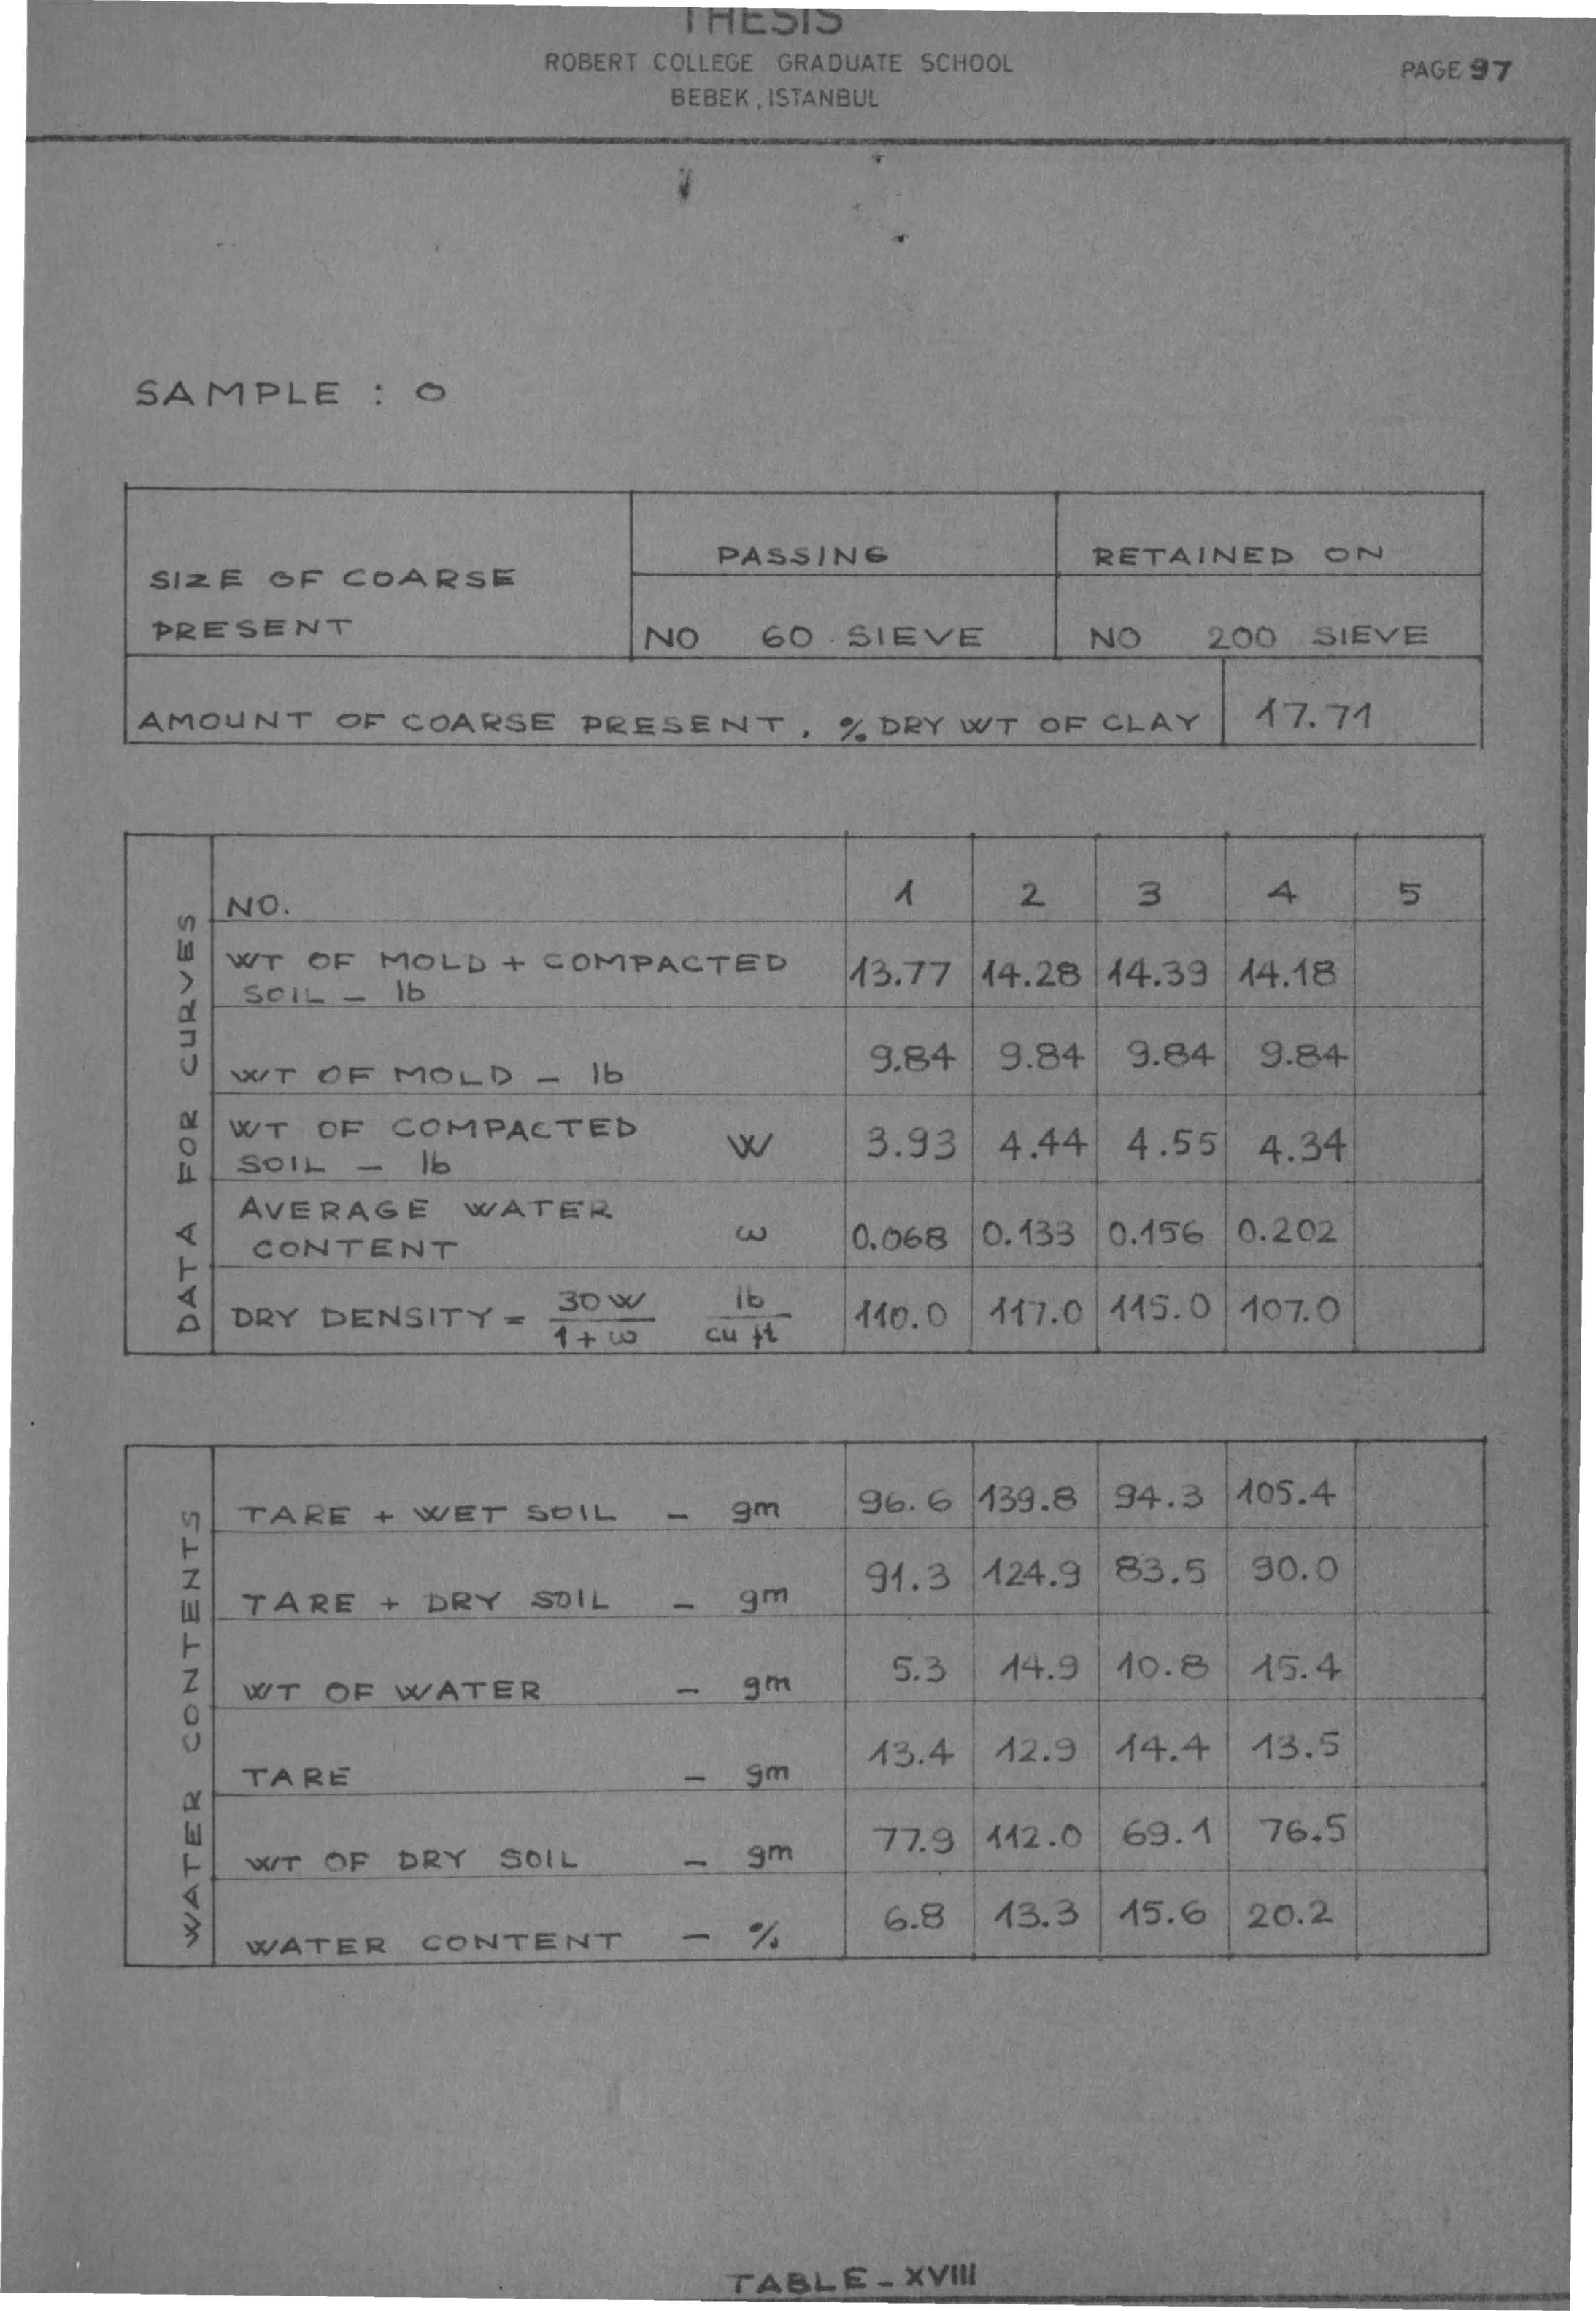 THESIS
ROBERT COLLEGE GRADUATE SCHOOL
BEBEK, ISTANBUL
PAGE 97
SAMPLE : O
SIZE OF COARSE PRESENT
PASSING
RETAINED ON
NO 60 SIEVE
NO 200 SIEVE
AMOUNT OF COARSE PRESENT, % DRY WT OF CLAY 17.71
DATA FOR CURVES
NO. 1 2 3 4 5
WT OF MOLD + COMPACTED
SOIL - lb 13.77 14.28 14.39 14.18
WT OF MOLD - lb 9.84 9.84 9.84 9.84
WT OF COMPACTED
SOIL - lb W 3.93 4.44 4.55 4.34
AVERAGE WATER
CONTENT ω 0.068 0.133 0.156 0.202
DRY DENSITY = 30W / 1+ω lb / cu ft 110.0 117.0 115.0 107.0
WATER CONTENTS
TARE + WET SOIL - gm 96.6 139.8 94.3 105.4
TARE + DRY SOIL - gm 91.3 124.9 83.5 90.0
WT OF WATER - gm 5.3 14.9 10.8 15.4
TARE - gm 13.4 12.9 14.4 13.5
WT OF DRY SOIL - gm 77.9 112.0 69.1 76.5
WATER CONTENT - % 6.8 13.3 15.6 20.2
TABLE - XVIII